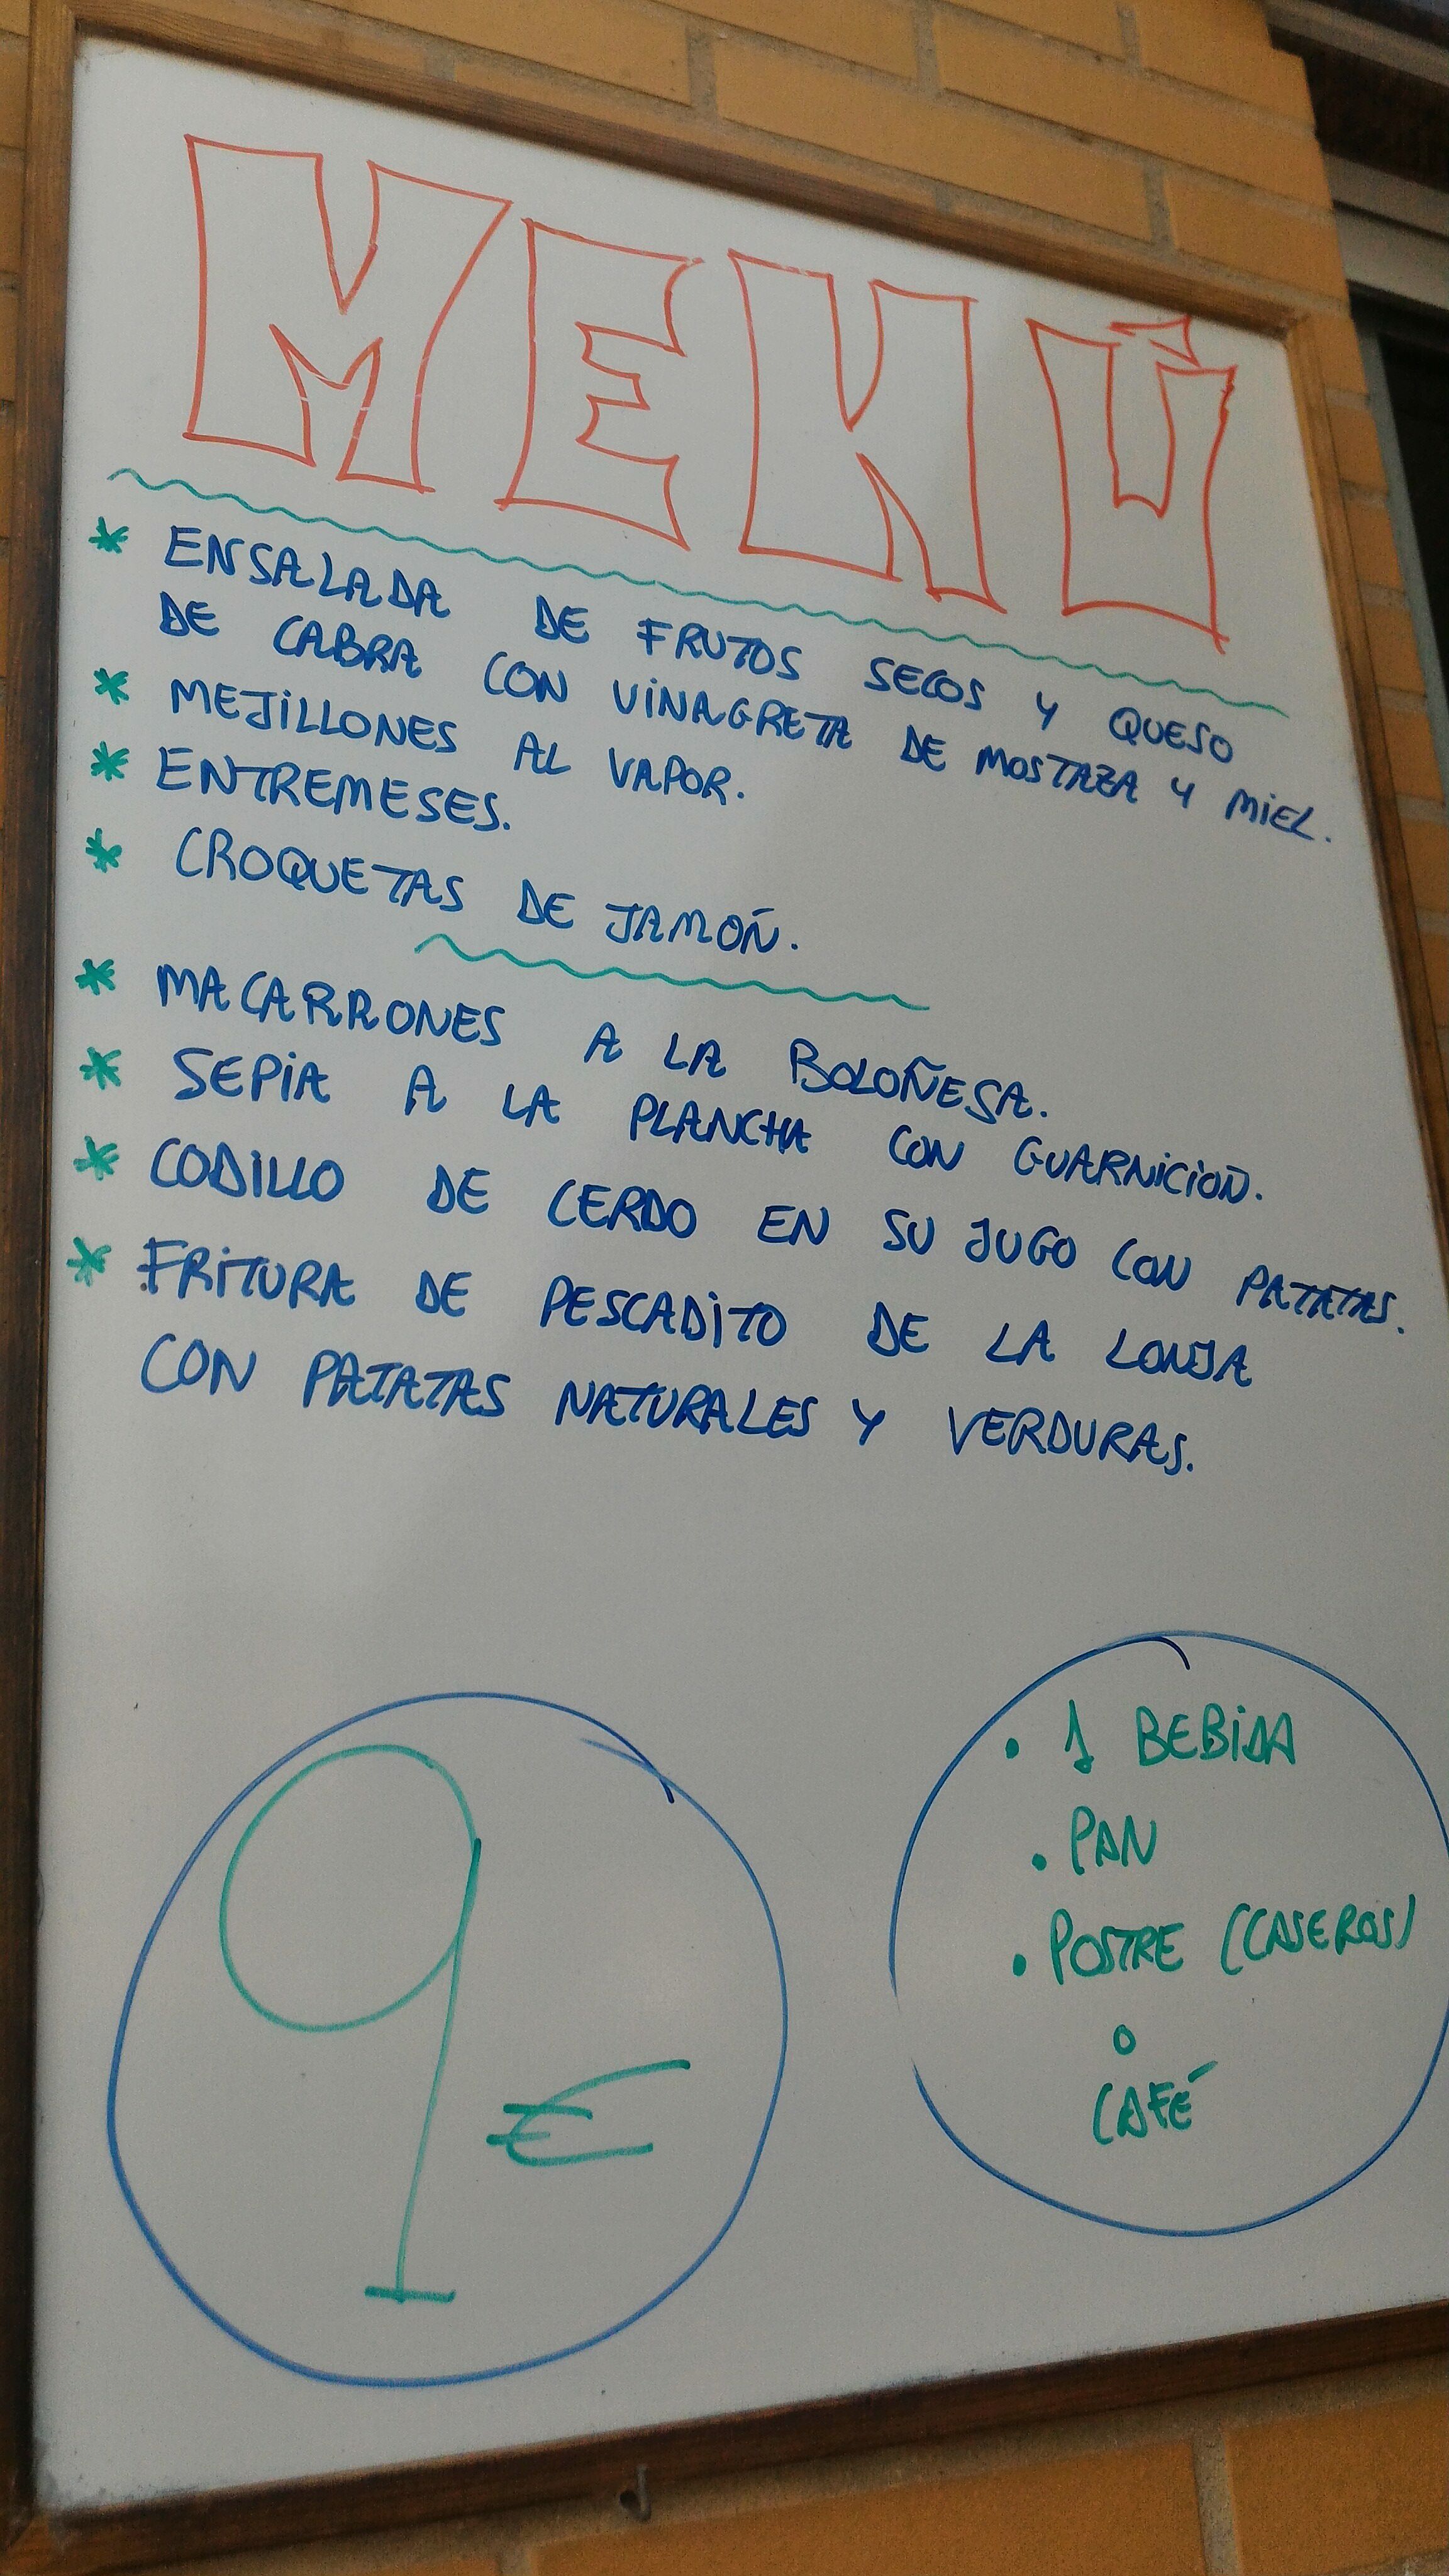 MENÚ
* ENSALADA DE FRUTOS SECOS Y QUESO
DE CABRA CON VINAGRETA DE MOSTAZA Y MIEL.
* MEJILLONES AL VAPOR.
* ENTREMESES.
* CROQUETAS DE JAMOÑ.
* MACARRONES A LA BOLOÑESA.
* SEPIA A LA PLANCHA CON GUARNICIOÑ.
* CODILLO DE CERDO EN SU JUGO CON PATATAS.
* FRITURA DE PESCADITO DE LA LONJA
CON PATATAS NATURALES Y VERDURAS.
9€
• 1 BEBIDA
• PAN
• POSTRE (CASEROS)
O
CAFÉ